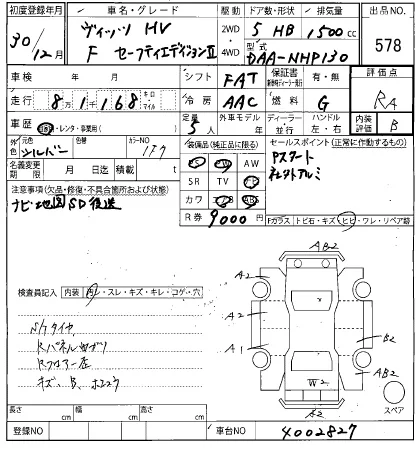 初度登録年月 車名・グレード 駆動 ドア数・形状 排気量 出品NO.
30年 12月 ヴィッツ HV 2WD 5 HB 1500cc 578
F セーフティエディションⅡ 4WD 型式 DAA-NHP130
車検 年 月 シフト FAT 保証書 有・無 評価点
走行 8万1千168 キロ マイル 冷房 AAC 燃料 G RA
車歴 レンタ・事業用 定員 5人 外車モデル 年 ディーラー 並行 ハンドル 左・右 内装 B
外色 元色 シルバー 色 カラーNO 1F7
装備品(純正品に限る) セールスポイント(正常に作動するもの)
名義変更期限 月 日迄 積載 t
PS PW AW Pスタート
SR TV ナビ 社外アルミ
カワ エアB ABS
R券 9000円
注意事項(欠品・修復・不具合箇所および状態)
ナビ地図SD後送
Fガラス トビ石・キズ・ヒビ・ワレ・リペア跡
検査員記入 内装 スレ・キズ・キレ・コゲ・穴
AB2
A2
A2
A1
B2
AB2
W2
A2
スペア
S/Tタイヤ
キズ、B、
長さ cm 幅 cm 高さ cm
登録NO 車台NO 4002827